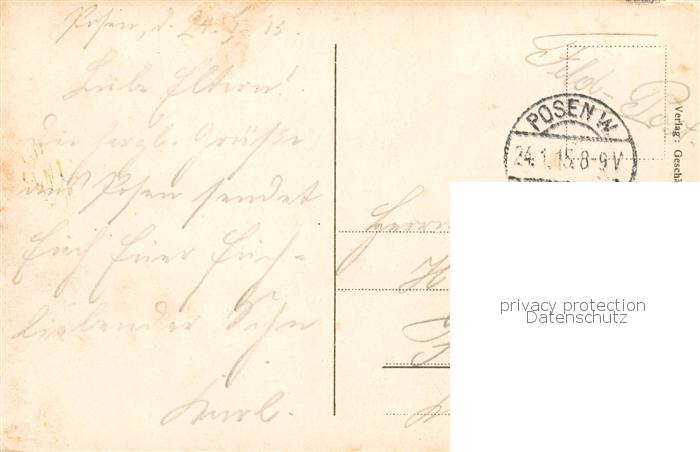 Posen, d. 24. I. 15.
Liebe Eltern!
Die herzl. Grüße
aus Posen sendet
Euch Euer Euch
liebender Sohn
Karl.
Feld-Post
POSEN W.
24.1.15.8-9V
Verlag: Geschä
Herrn
H
F
privacy protection
Datenschutz